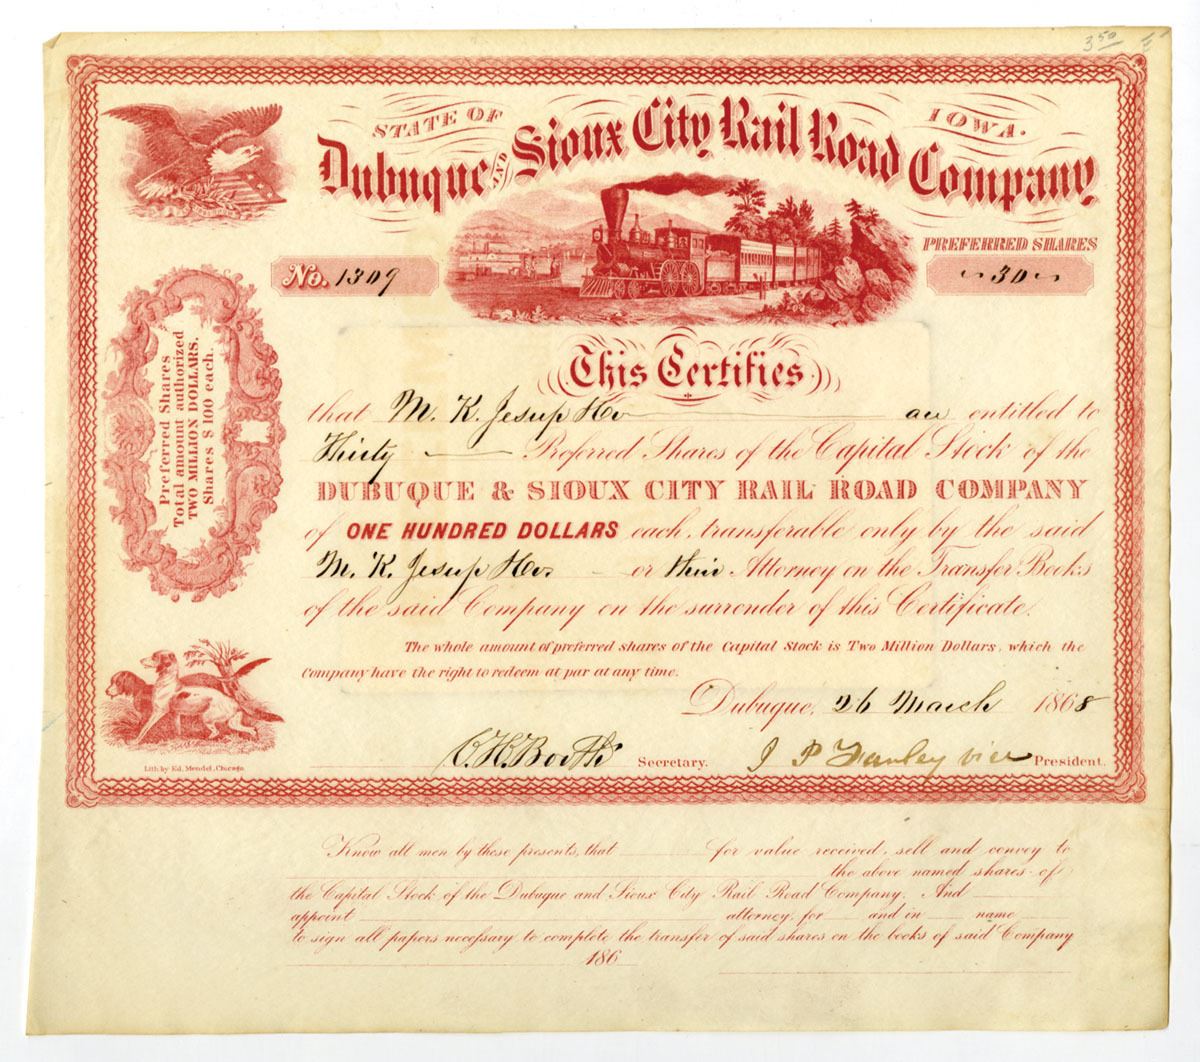 3 50
STATE OF IOWA.
Dubuque AND Sioux City Rail Road Company
PREFERRED SHARES
No. 1309
30
Preferred Shares
Total amount authorized
TWO MILLION DOLLARS.
Shares $100 each.
This Certifies
that M. K. Jesup & Co are entitled to
Thirty Preferred Shares of the Capital Stock of the
DUBUQUE & SIOUX CITY RAIL ROAD COMPANY
of ONE HUNDRED DOLLARS each, transferable only by the said
M. K. Jesup & Co. or their Attorney on the Transfer Books
of the said Company on the surrender of this Certificate.
The whole amount of preferred shares of the Capital Stock is Two Million Dollars, which the
Company have the right to redeem at par at any time.
Dubuque, 26 March 1868
Lith by Ed. Mendel, Chicago.
C. H. Booth Secretary. J P Farley vice President.
Know all men by these presents, that for value received, sell and convey to
the above named shares of
the Capital Stock of the Dubuque and Sioux City Rail Road Company. And
appoint attorney, for and in name
to sign all papers necessary to complete the transfer of said shares on the books of said Company
186